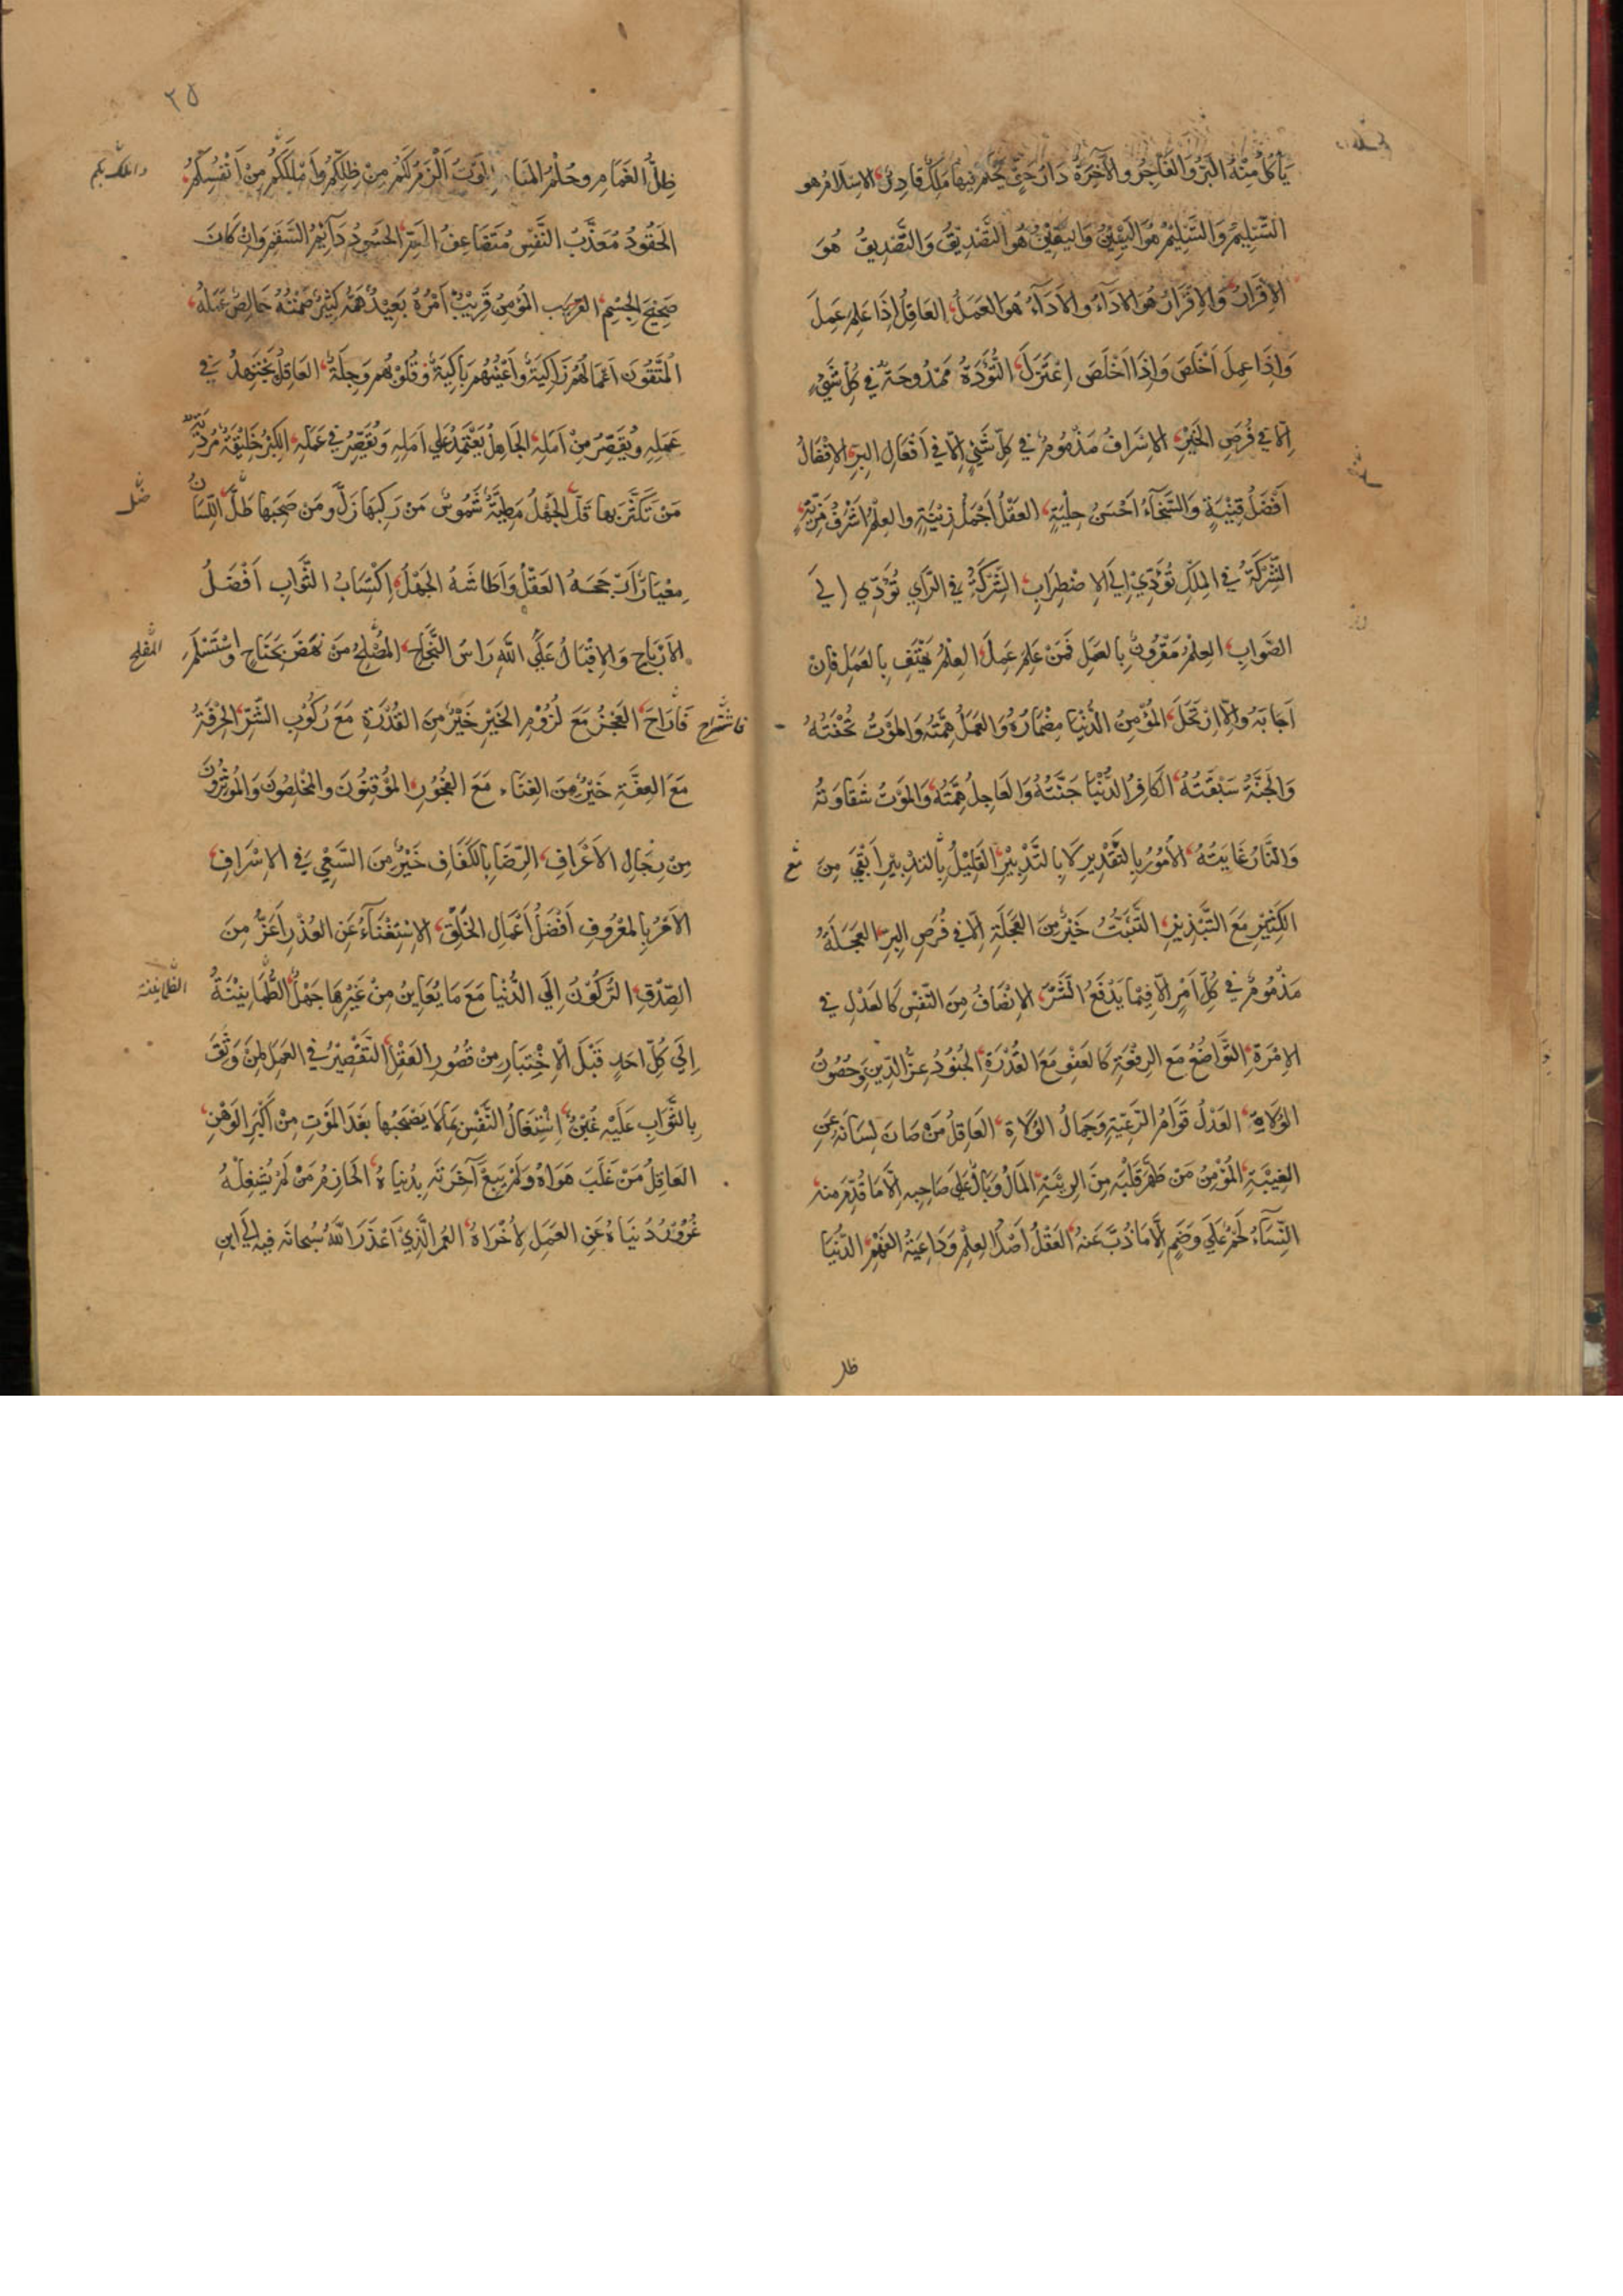 يَأكُلُ مِنْهُ البَرُّ وَالفَاجِرُ وَالآخِرَةُ دَارُ حَقٍّ يَحْكُمُ فِيهَا مَلِكٌ قَادِرٌ الاِسْلَامُ هو
التَّسْلِيمُ وَالتَّسْلِيْمُ هُوَ اليَقِيْنُ وَاليَقِيْنُ هُوَ التَّصْدِيْقُ وَالتَّصْدِيقُ هُوَ
الإقْرَارُ وَالإِقْرَارُ هُوَ الادَآءُ وَالاَدَآءُ هُوَ العَمَلُ العَاقِلُ إِذَا عَلِمَ عَمِلَ
وَإِذَا عَمِلَ اَخْلَصَ وَاِذَا اَخْلَصَ اِعْتَزَلَ التُّؤَدَةُ مَمْدُوحَةٌ فِي كُلِّ شَيْءٍ
اِلَّا فِي فُرَصِ الخَيْرِ الاِسْرَافُ مَذْمُومٌ فِي كُلِّ شَيْءٍ اِلَّا فِي اَفْعَالِ البِرِّ الاِفْضَالُ
اَفْضَلُ قِنْيَةٍ وَالسَّخَآءُ اَحْسَنُ حِلْيَةٍ العَقْلُ اَجْمَلُ زِيْنَةٍ والعِلْمُ اَشْرَفُ مَزِيَّةٍ
الشِّرْكَةُ فِي المُلْكِ تُؤَدِّيْ اِلَى الاِضْطِرَابِ الشِّرْكَةُ فِي الرَّايِ تُؤَدِّي اِلَى
الصَّوَابِ العِلْمُ مَقْرُونٌ بِالعَمَلِ فَمَنْ عَلِمَ عَمِلَ العِلْمُ يَهْتِفُ بِالعَمَلِ فَاِنْ
اَجَابَهُ وَاِلَّا ارْتَحَلَ المُؤْمِنُ الدُّنْيَا مِضْمَارُهُ وَالعَمَلُ هِمَّتُهُ وَالمَوْتُ تُحْفَتُهُ
وَالجَنَّةُ سَبْقَتُهُ الكَافِرُ الدُّنْيَا جَنَّتُهُ وَالعَاجِلُ هِمَّتُهُ وَالمَوْتُ شَقَاوَتُهُ
وَالنَّارُ غَايَتُهُ الاُمُوْرُ بِالتَّقْدِيرِ لَا بِالتَّدْبِيْرِ القَلِيْلُ بِالتَدْبِيْرِ اَبْقَى مِنَ
الكَثِيْرِ مَعَ التَّبْذِيْرِ التَّثَبُّتُ خَيْرٌ مِنَ العَجَلَةِ اِلَّا فِي فُرَصِ البِرِّ العَجَلَةُ
مَذْمُومَةٌ فِي كُلِّ اَمْرٍ اِلَّا فِيْمَا يَدْفَعُ الشَّرَّ الاِنْصَافُ مِنَ النَّفْسِ كَالعَدْلِ فِي
الاِمْرَةِ التَّوَاضُعُ مَعَ الرِفْعَةِ كَالعَفْوِ مَعَ القُدْرَةِ الجُنُوْدُ عِزُّ الدِّينِ وَحُصُوْنُ
الوُلَاةِ العَدْلُ قِوَامُ الرَّعِيَّةِ وَجَمَالُ الوُلَاةِ العَاقِلُ مَنْ صَانَ لِسَانَهُ عَنِ
الغِيْبَةِ المُؤْمِنُ مَنْ طَهَّرَ قَلْبَهُ مِنَ الرِيْبَةِ المَالُ وَبَالٌ عَلَى صَاحِبِهِ اِلَّا مَا قَدَّمَ مِنهُ
النِّسَآءُ لَحْمٌ عَلَى وَضَمٍ اِلَّا مَا ذُبَّ عَنْهُ العَقْلُ اَصْلُ العِلْمِ وَدَاعِيَةُ الفَهْمِ الدُّنْيَا
ظل
٢٥
ظِلُّ الغَمَامِ وحُلْمُ المَنَامِ المَوْتُ اَلْزَمُ لَكُمْ مِنْ ظِلِّكُمْ وَاَمْلَكُ بِكُمْ مِنْ اَنْفُسِكُمْ
الحَقُودُ مُعَذَّبُ النَّفْسِ مُتَضَاعِفُ الهَمِّ الحَسُوْدُ دَآئِمُ السَّقَمِ وَاِنْ كَانَ
صَحِيْحَ الجِسْمِ المُؤْمِنُ قَرِيْبٌ اَمْرُهُ بَعِيْدٌ هَمُّهُ كَثِيْرٌ صَمْتُهُ خَالِصٌ عَمَلُهُ
المُتَّقُوْنَ اَعْمَالُهُمْ زَاكِيَةٌ وَاَعْيُنُهُمْ بَاكِيَةٌ وَقُلُوْبُهُمْ وَجِلَةٌ العَاقِلُ يَجْتَهِدُ فِي
عَمَلِهِ وَيُقَصِّرُ مِنْ اَمَلِهِ الجَاهِلُ يَعْتَمِدُ عَلَى اَمَلِهِ وَيُقَصِّرُ فِي عَمَلِهِ الكِبْرُ خَلِيْقَةٌ مُرْدِيَةٌ
مَنْ تَكَثَّرَ بِهَا قَلَّ الجَهْلُ مَطِيَّةٌ شَمُوْسٌ مَنْ رَكِبَهَا زَلَّ وَمَن صَحِبَهَا ضَلَّ اللِّسَانُ
مِعْيَارٌ اَرْجَحَهُ العَقْلُ وَاَطَاشَهُ الجَهْلُ اِكْتِسَابُ الثَّوَابِ اَفْضَلُ
الاَرْبَاحِ وَالاِقْبَالُ عَلَى اللّهِ رَاسُ النَّجَاحِ المُصْلِحُ مَنْ نَهَضَ بِجَنَاحٍ اَوِ اسْتَسْلَمَ
فَاَرَاحَ العَجْزُ مَعَ لُزُوْمِ الخَيْرِ خَيْرٌ مِنَ القُدْرَةِ مَعَ رُكُوْبِ الشَّرِّ الحِرْفَةُ
مَعَ العِفَّةِ خَيْرٌ مِنَ الغِنَاءِ مَعَ الفُجُوْرِ المُوْقِنُوْنَ وَالمُخْلِصُوْنَ وَالمُؤْثِرُوْنَ
مِنْ رِجَالِ الاَعْرَافِ الرِّضَا بِالكَفَافِ خَيْرٌ مِنَ السَّعْيِ فِي الاِسْرَافِ
الاَمْرُ بِالمَعْرُوفِ اَفْضَلُ اَعْمَالِ الخَلْقِ الاِسْتِغْنَآءُ عَنِ العُذْرِ اَعَزُّ مِنَ
الصِّدْقِ الرُّكُوْنُ اِلَى الدُّنْيَا مَعَ مَا يُعَايِنُ مِنْ غَيْرِهَا جَهْلٌ الطُّمَانِيْنَةُ
اِلَى كُلِّ اَحَدٍ قَبْلَ الاِخْتِبَارِ مِنْ قُصُورِ العَقْلِ التَّقْصِيْرُ فِي العَمَلِ لِمَنْ وَثِقَ
بِالثَّوَابِ عَلَيْهِ غُبْنٌ اِشْتِغَالُ النَّفْسِ بِمَا لَا يَصْحَبُهَا بَعْدَ المَوْتِ مِنْ اَكْبَرِ الوَهْنِ
العَاقِلُ مَنْ غَلَبَ هَوَاهُ وَلَمْ يَبِعْ آخِرَتَهُ بِدُنيَاهُ الحَازِمُ مَنْ لَمْ يُشْغِلْهُ
غُرُوْرُ دُنيَاهُ عَنِ العَمَلِ لِأُخْرَاهُ العُمُرُ الَّذِيْ اَعْذَرَ اللّهُ سُبحَانَه فِيهِ اِلَى ابنِ
واملك بكم
ضل
المفلح
فاستراح
الطمانينة